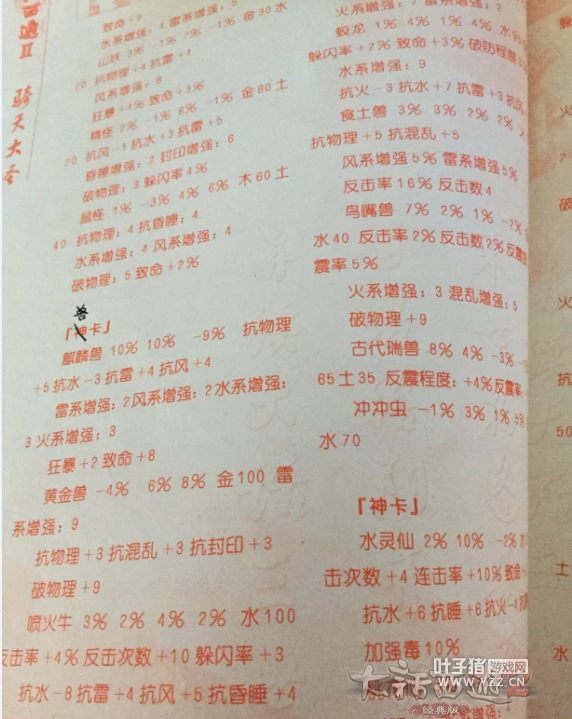 西遊II 骑天大圣
致命+9
水系增强:4 雷系增强:5
山妖 3% -1% 7% -1% 金30水
70 抗物理+4抗雷+4
风系增强:8
狂暴+4%致命+3%
精怪 2% -1% 8% -1% 金80土
20 抗风-1抗水+3抗雷+5
昏睡增强:2封印增强:6
破物理:3躲闪率4%
鼠怪 1% -3% 4% 6% 木60土
40 抗物理:4抗昏睡:4
水系增强:4风系增强:4
破物理:5致命+2%
兽
「神卡」
麒麟兽 10% 10% -9% 抗物理
+5抗水-3抗雷+4抗风+4
雷系增强:2风系增强:2水系增强:
3火系增强:3
狂暴+2致命+8
黄金兽 -4% 6% 8% 金100 雷
系增强:9
抗物理+3抗混乱+3抗封印+3
破物理+9
喷火牛 3% 2% 4% 2% 水100
反击率+4%反击次数+10躲闪率+3
抗水-8抗雷+4抗风+5抗昏睡+4
火系增强:7雷系增强:2
鲛龙 1% 4% 1% 4% 水
躲闪率+2%致命+3%破防程度
水系增强:9
抗火-3抗水+7抗雷+3抗风
食土兽 3% 3% 2% 2%
抗物理+5抗混乱+5
风系增强5%雷系增强5%
反击率16%反击数4
鸟嘴兽 7% 2% 1% -2%
水40 反击率2%反击数2%反震
震率5%
火系增强:3混乱增强:5
破物理+9
古代瑞兽 8% 4% -3%
65土35 反震程度:+4%反震率
冲冲虫 -1% 3% 1% 5%
水70
「神卡」
水灵仙 2% 10% -2%
击次数+4连击率+10%致命
抗水+6抗睡+6抗火-4
加强毒10%
土
火
破
抗
50
土
水
叶子猪游戏网
WWW.YZZ.CN
大话西游
经典版